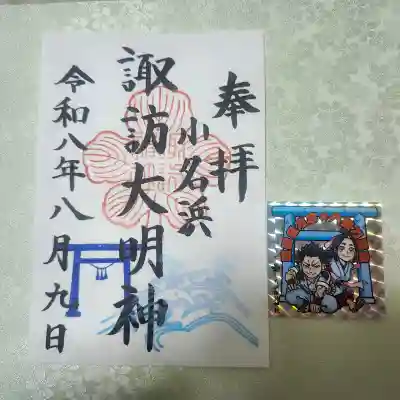 奉拝
小名浜
諏訪大明神
令和八年八月九日